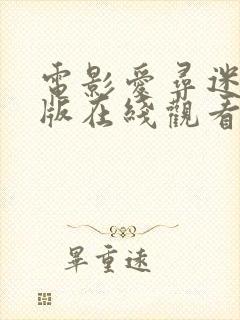 電影愛尋迷
版在綫觀看
畢重遠